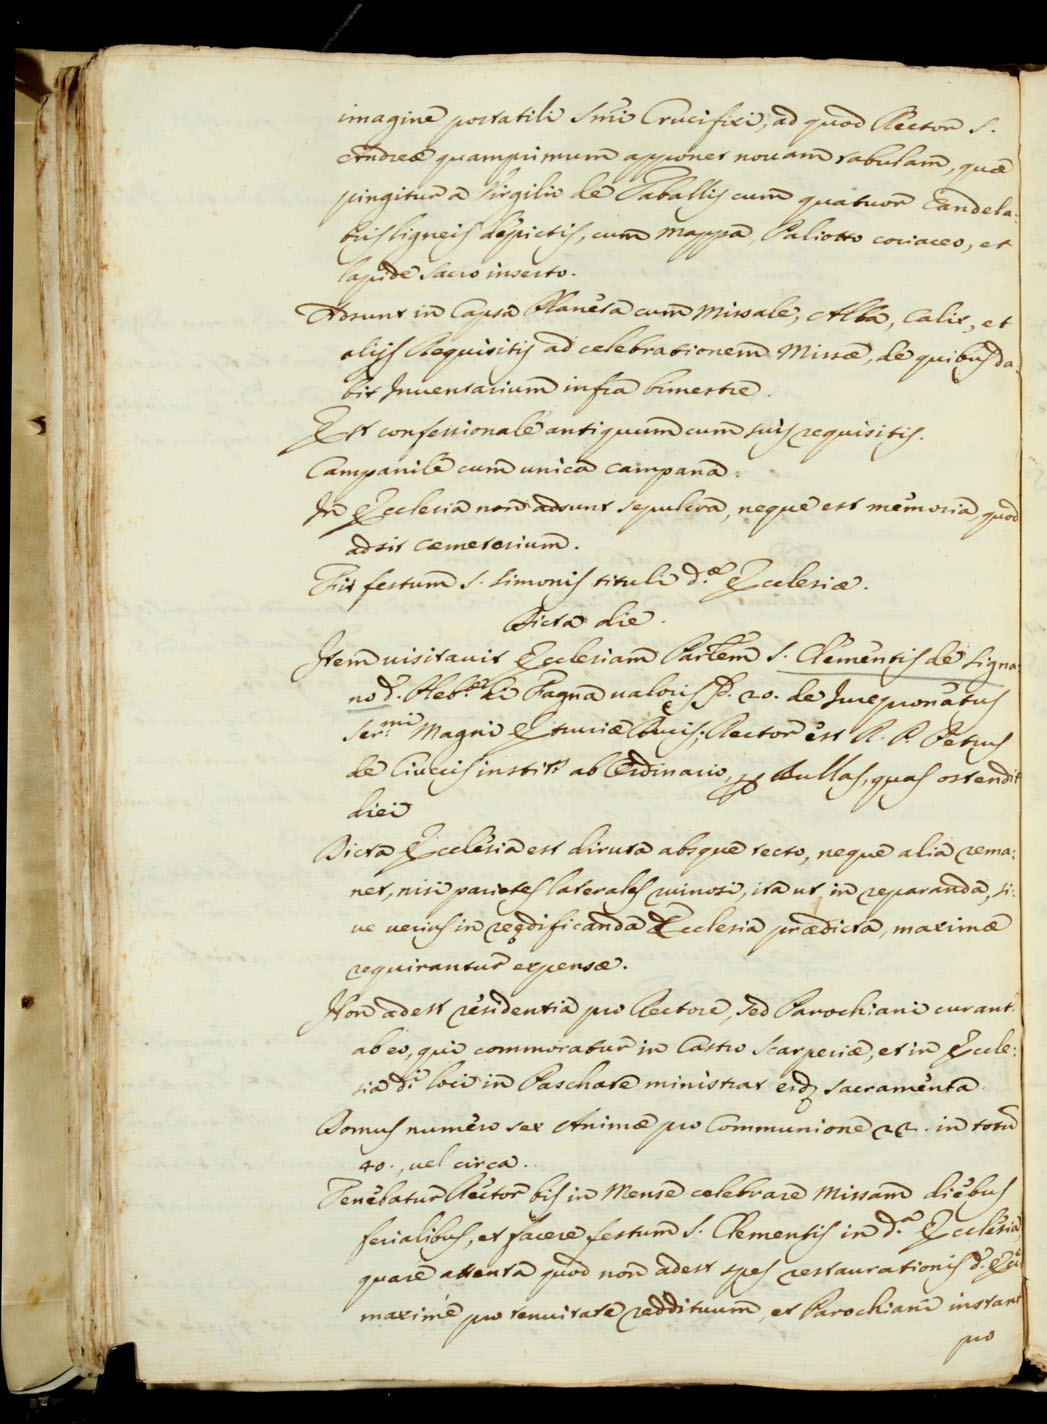 imagine portatili S.mi Crucifixi, ad quod Rector S.
Andreæ quamprimum apponet nouam tabulam, quæ
pingitur a Virgilio de Zaballis cum quatuor Candela:
bris ligneis depictis, cum Mappa, Paliotto coriaceo, et
lapide sacro inserto.
Adsunt in Capsa Planeta cum Missale, Alba, Calix, et
alijs Requisitis ad celebrationem Missæ, de quibus da:
bit Inuentarium infra bimestre.
Est confessionale antiquum cum suis requisitis.
Campanile cum unica campana.
In Ecclesia non adsunt sepulcra, neque est memoria, quod
adsit cæmeterium.
Fit festum S. Simonis tituli d.æ Ecclesiæ.
Dicta die.
Item uisitauit Ecclesiam Par.lem S. Clementis de Signa:
no d. Pleb.s de Fagna ualoris 20. de Iurepronatus
Ser.mi Magni Etruriæ Ducis; Rector est R. P. Petrus
de Ciuccis instit.s ab Ordinario, Bullas, quas ostendit
diei
Dicta Ecclesia est diruta absque tecto, neque alia rema:
net, nisi parietes laterales ruinosi, ita ut in reparanda, si:
ue uerius in reædificanda Ecclesia prædicta, maximæ
requirantur expensæ.
Non adest residentia pro Rectore, sed Parochiani curant.
ab eo, qui commoratur in Castro Scarperiæ, et in Eccle:
sia d.i loci in Paschate ministrat eisdq sacramenta.
Domus numero sex Animæ pro Communione 22. in totu
40., uel circa.
Tenebatur Rector bis in Mense celebrare Missam diebus
ferialibus, et facere festum S. Clementis in d.a Ecclesia,
quare attenta quod non adest spes restaurationis d.
maxime pro tenuitate reddituum, et Parochiani instant
pro